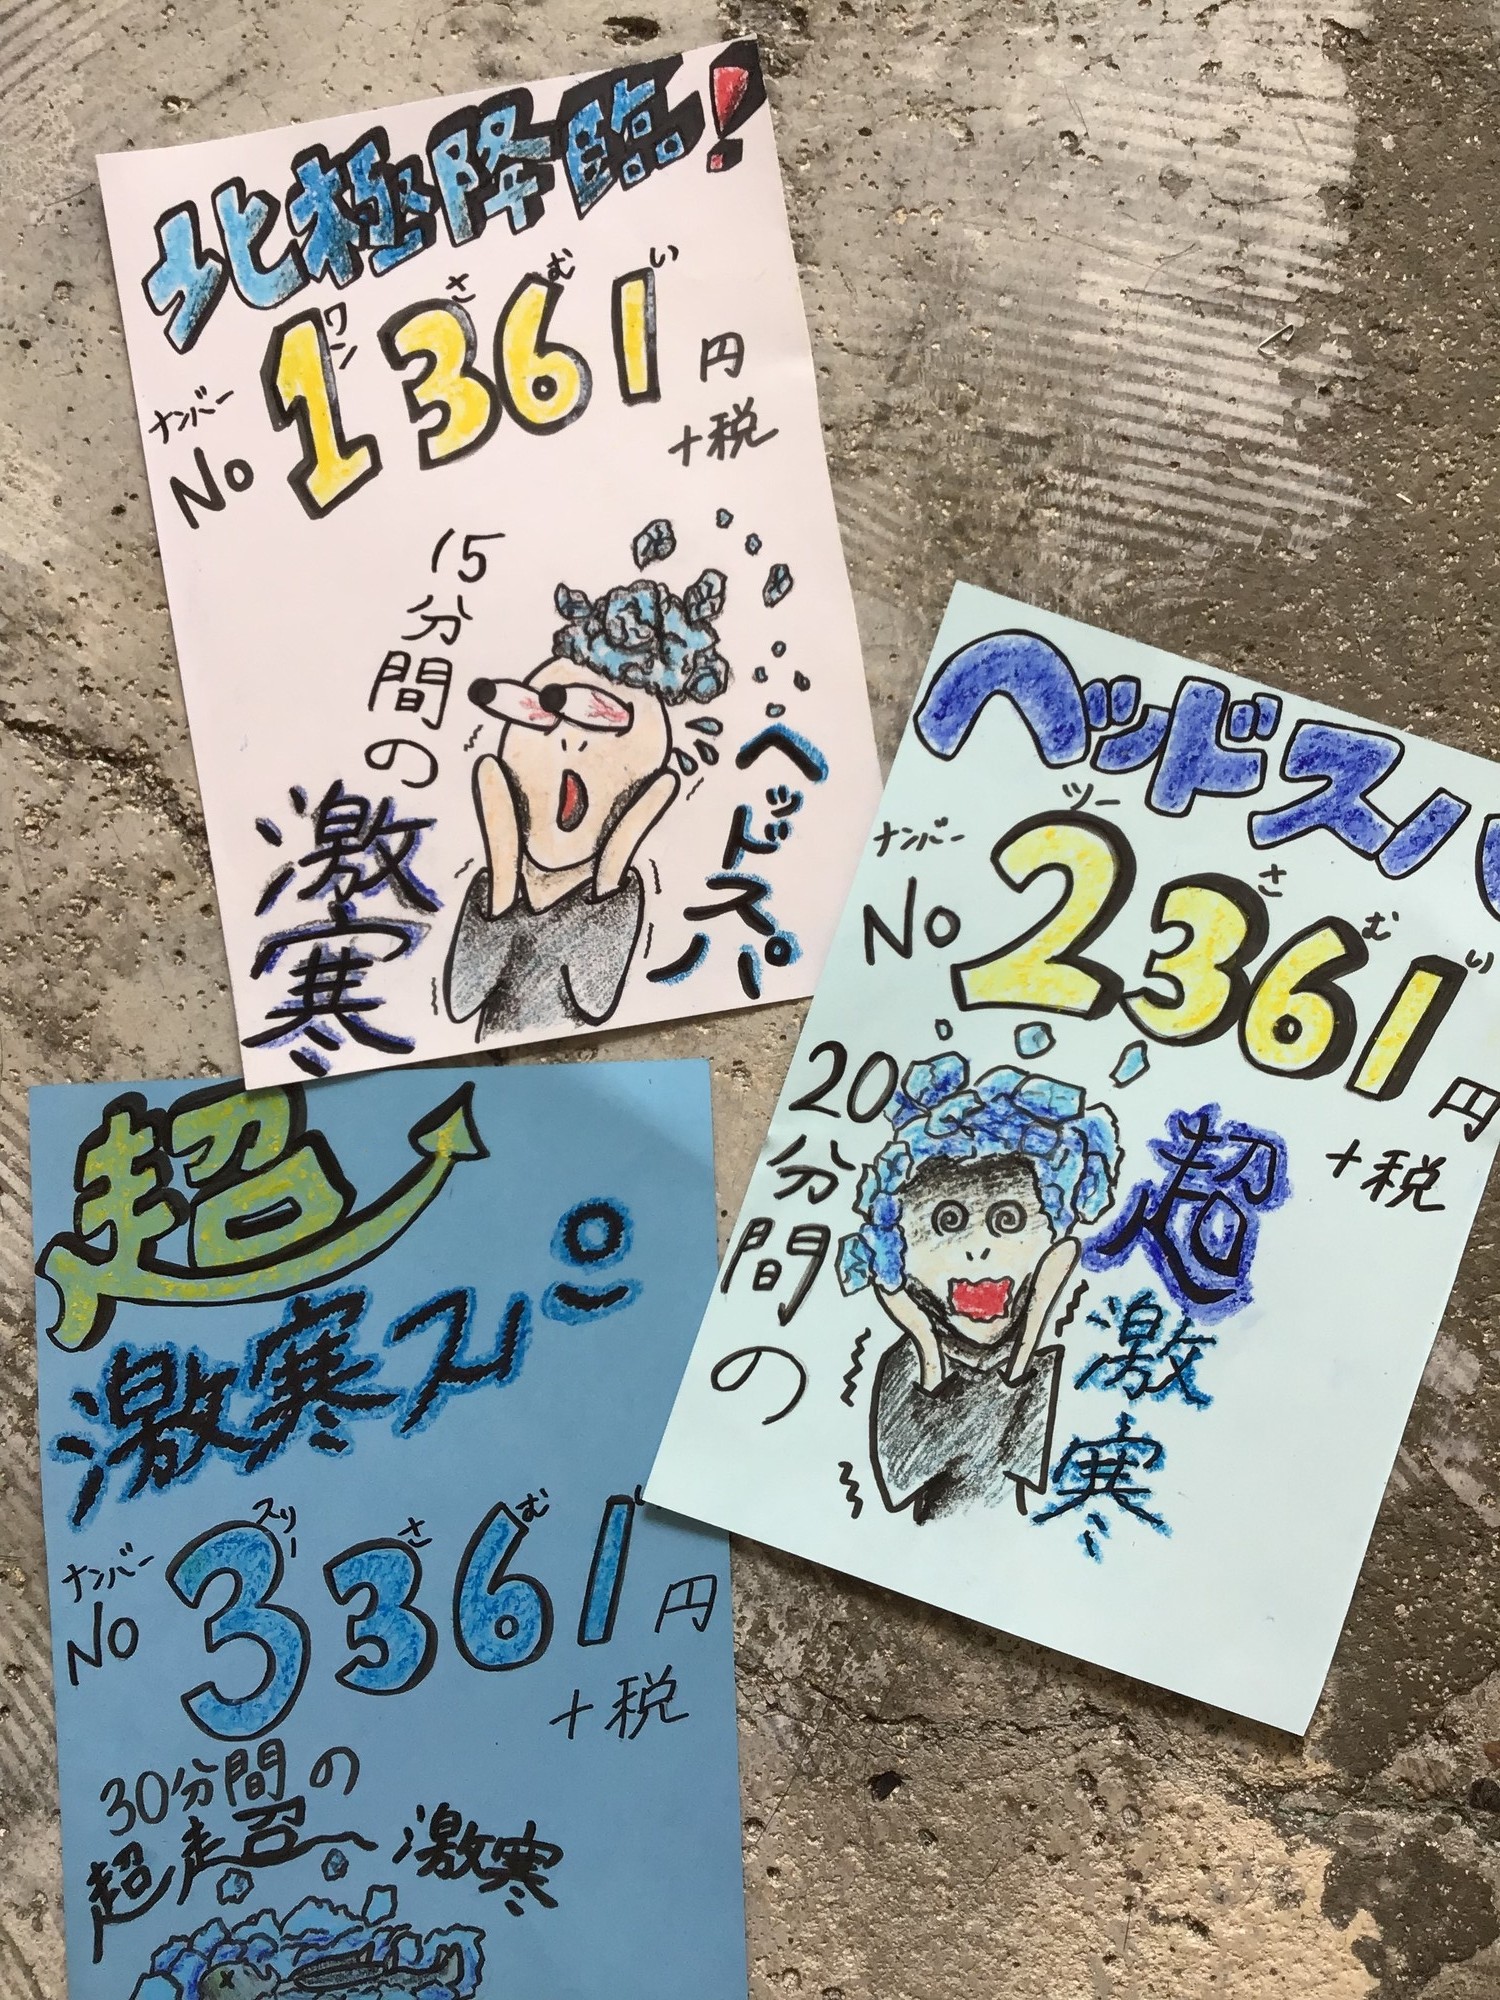 北極降臨!
ワン さ む い
ナンバー
No 1361円
+税
15分間の
激寒
ヘッドスパ
ヘッドスパ
ツー さ む い
ナンバー
No 2361円
+税
20分間の
超
激寒
超
激寒スパ
スリー さ む い
ナンバー
No 3361円
+税
30分間の
超超激寒